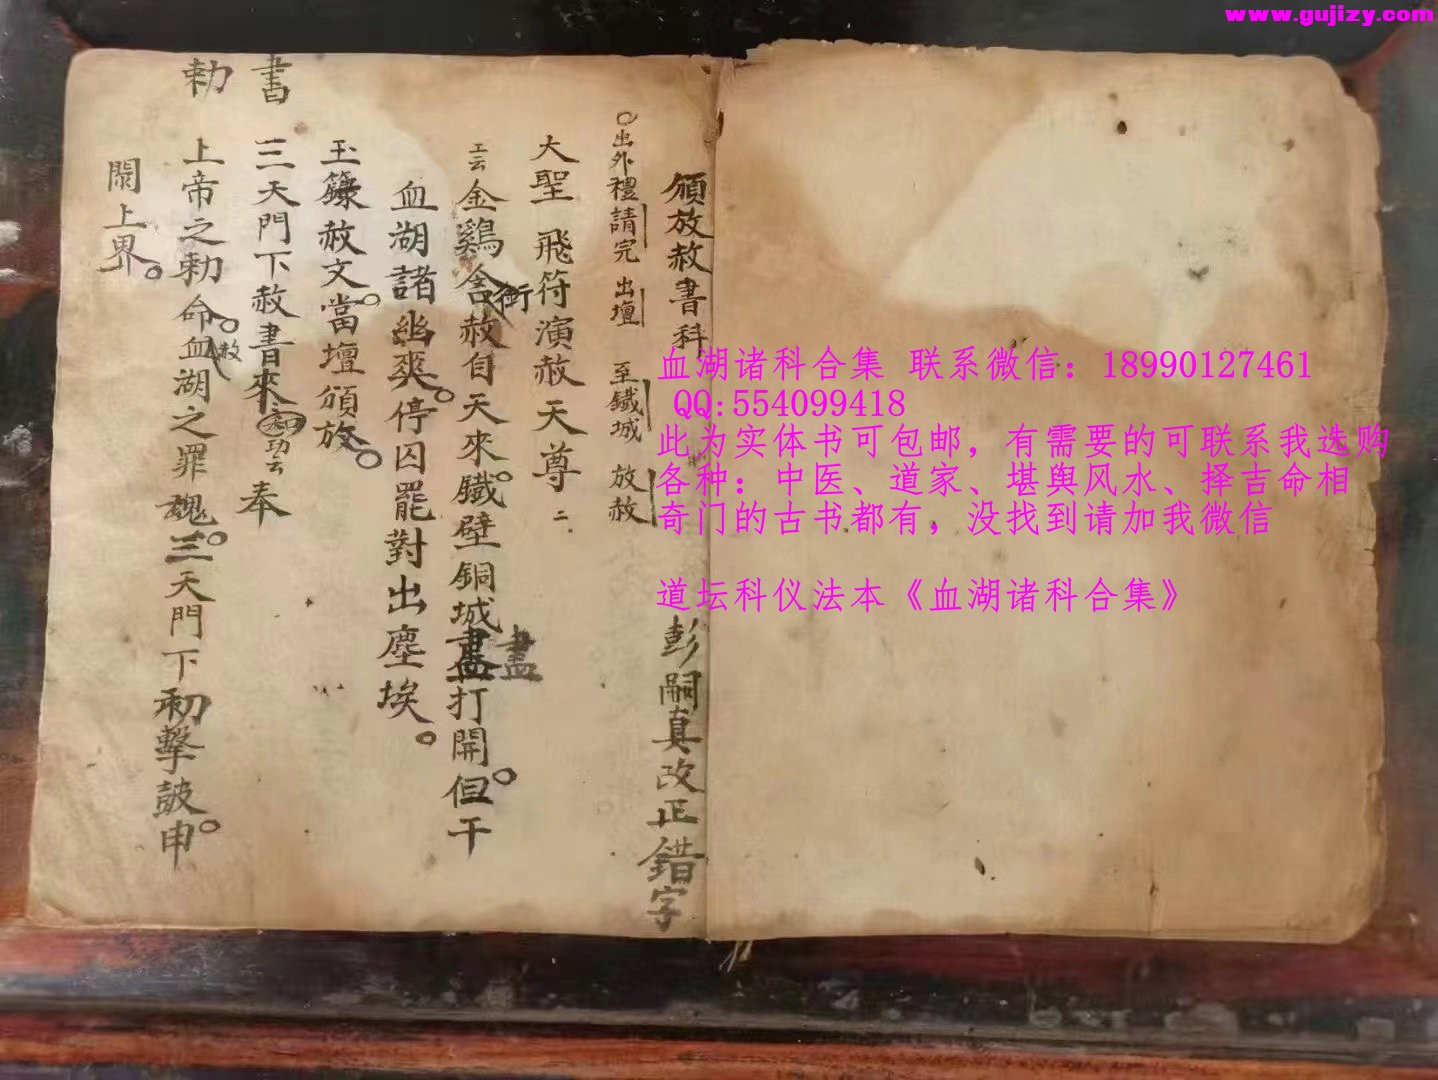 www.gujizy.com
頒放赦書科
彭嗣真改正錯字
出外禮請完 出壇 至鐵城 放赦
大聖 飛符演赦天尊 二
工云 金鷄含赦自天來鐵壁銅城盡打開但干
衔
盡
血湖諸幽爽停囚罷對出塵埃
玉籙赦文當壇頒放
書
三天門下赦書來 和 功云 奉
勅
上帝之勅命血湖之罪魂三天門下初擊鼓申
赦
閙上界
血湖诸科合集 联系微信：18990127461
QQ:554099418
此为实体书可包邮，有需要的可联系我选购
各种：中医、道家、堪舆风水、择吉命相
奇门的古书都有，没找到请加我微信
道坛科仪法本《血湖诸科合集》